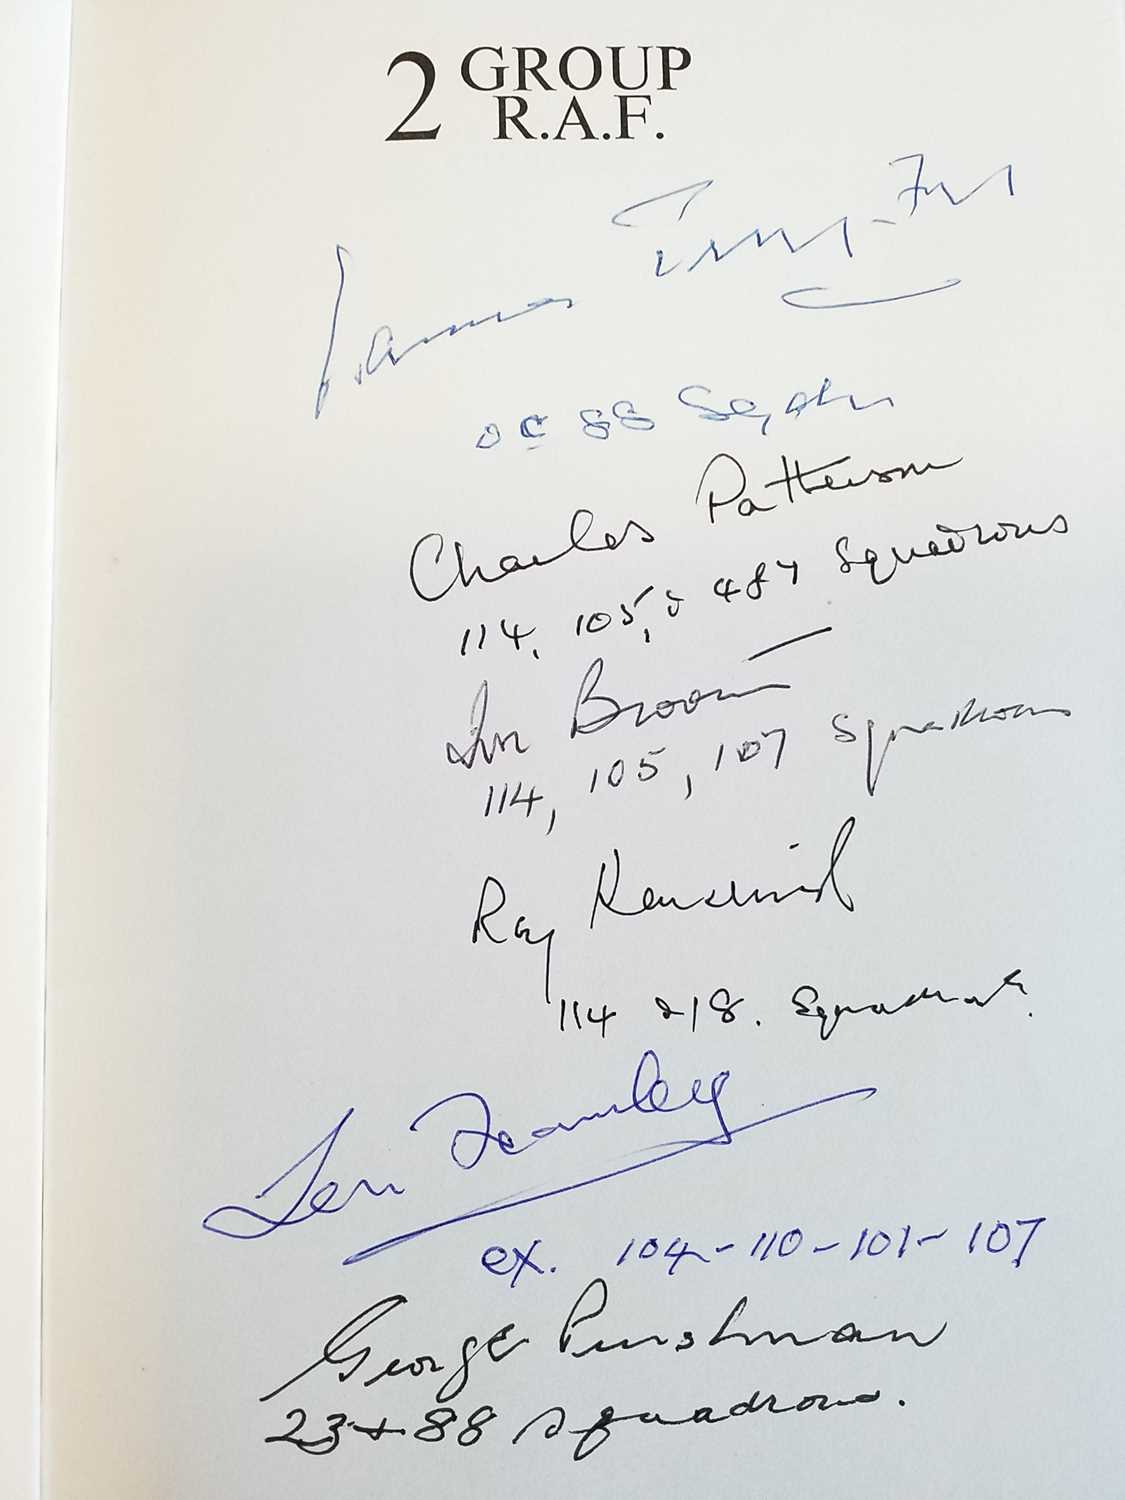 2 GROUP
R.A.F.
James Pelly-Fry
OC 88 Sqdn
Charles Patterson
114, 105, & 487 Squadrons
Ivor Broom
114, 105, 107 Squadrons
Ray
114 & 18. Squadrons.
Len Fearnley
ex. 104-110-101-107
George Pushman
23 + 88 Squadrons.